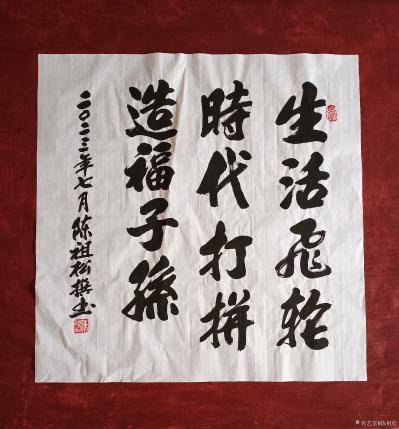 生活飛轮
時代打拼
造福子孫
二〇二三年七月陈祖松撰书